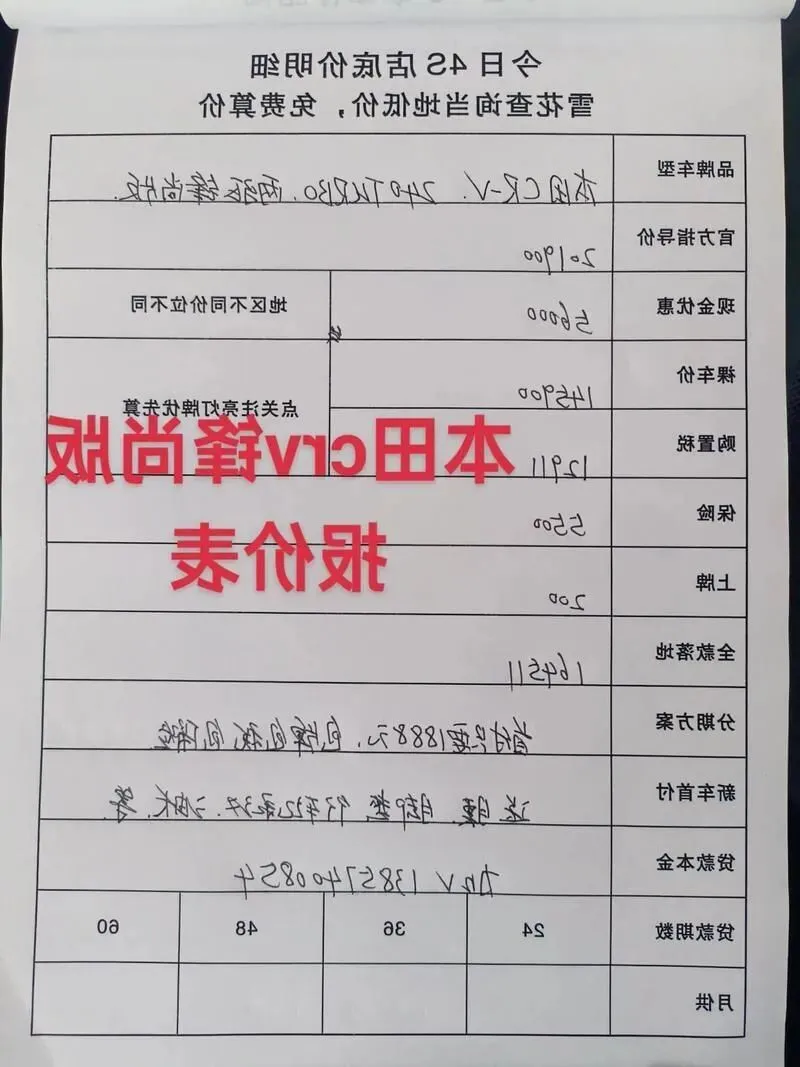 今日4S店底价明细
雪花查询当地低价，免费算价
品牌车型 本田CR-V. 240TURBO. 两驱锋尚版.
官方指导价 201900
现金优惠 56000 地区不同价位不同
裸车价 145900 点关注亮灯牌优先算
购置税 12911
本田crv锋尚版
保险 5500
报价表
上牌 200
全款落地 164511
分期方案 首付只需1888元, 包牌包税包保险
新车首付 送 脚垫 油卡 等.
贷款本金 加V 13857400854
贷款期数 24 36 48 60
月供